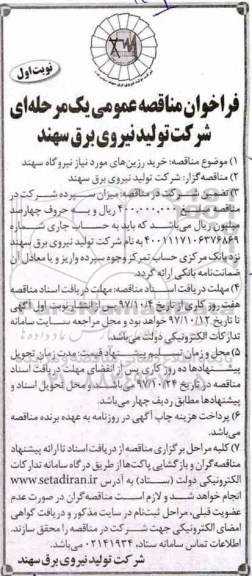 نوبت اول
فراخوان مناقصه عمومی یک مرحله‌ای
شرکت تولید نیروی برق سهند
۱) موضوع مناقصه: خرید رزین‌های مورد نیاز نیروگاه سهند
۲) مناقصه گزار: شرکت تولید نیروی برق سهند
۳) تضمین شرکت در مناقصه: میزان سپرده شرکت در
مناقصه مبلغ ۴۰۰,۰۰۰,۰۰۰ ریال و به حروف چهارصد
میلیون ریال می‌باشد که باید به حساب جاری شماره
۴۰۰۱۱۱۷۱۰۶۳۷۶۸۶۹ به نام شرکت تولید نیروی برق سهند
نزد بانک مرکزی حساب تمرکز وجوه سپرده واریز و یا معادل آن
ضمانت‌نامه بانکی ارائه گردد.
۴) مهلت دریافت اسناد مناقصه: مهلت دریافت اسناد مناقصه
هفت روز کاری از تاریخ ۹۷/۱۰/۴ پس از انتشار نوبت اول آگهی
تا تاریخ ۹۷/۱۰/۱۲ خواهد بود و محل مراجعه سایت سامانه
تدارکات الکترونیکی دولت می‌باشد.
۵) محل و زمان تسلیم پیشنهاد قیمت: مدت زمان تحویل
پیشنهادها ده روز کاری پس از انقضای مهلت دریافت اسناد
مناقصه در تاریخ ۹۷/۱۰/۲۴ می‌باشد و محل تحویل اسناد و
پیشنهادها مطابق ردیف چهار می‌باشد.
۶) پرداخت هزینه چاپ آگهی در روزنامه به عهده برنده مناقصه
می‌باشد.
۷) کلیه مراحل برگزاری مناقصه از دریافت اسناد تا ارائه پیشنهاد
مناقصه‌گران و بازگشایی پاکت‌ها از طریق درگاه سامانه تدارکات
الکترونیکی دولت (ستاد) به آدرس www.setadiran.ir
انجام خواهد شد و لازم است مناقصه‌گران در صورت عدم
عضویت قبلی، مراحل ثبت‌نام در سایت مذکور و دریافت گواهی
امضای الکترونیکی جهت شرکت در مناقصه را محقق سازند.
اطلاعات تماس سامانه ستاد، ۰۲۱۴۱۹۳۴ می‌باشد.
شرکت تولید نیروی برق سهند